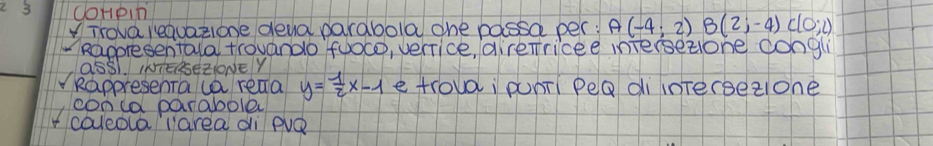 2 3 COMPIN
Trova l'equazione della parabola che passa per: A(-4; 2) B(2;-4) C(0;2)
Rappresentala trovando fuoco, vertice, direttrice e intersezione congli
assi. INTERSEZIONE Y
Rappresenta la retta y=1/2x-1 e trova i punti PeQ di intersezione
con la parabola
calcola l'area di PVQ